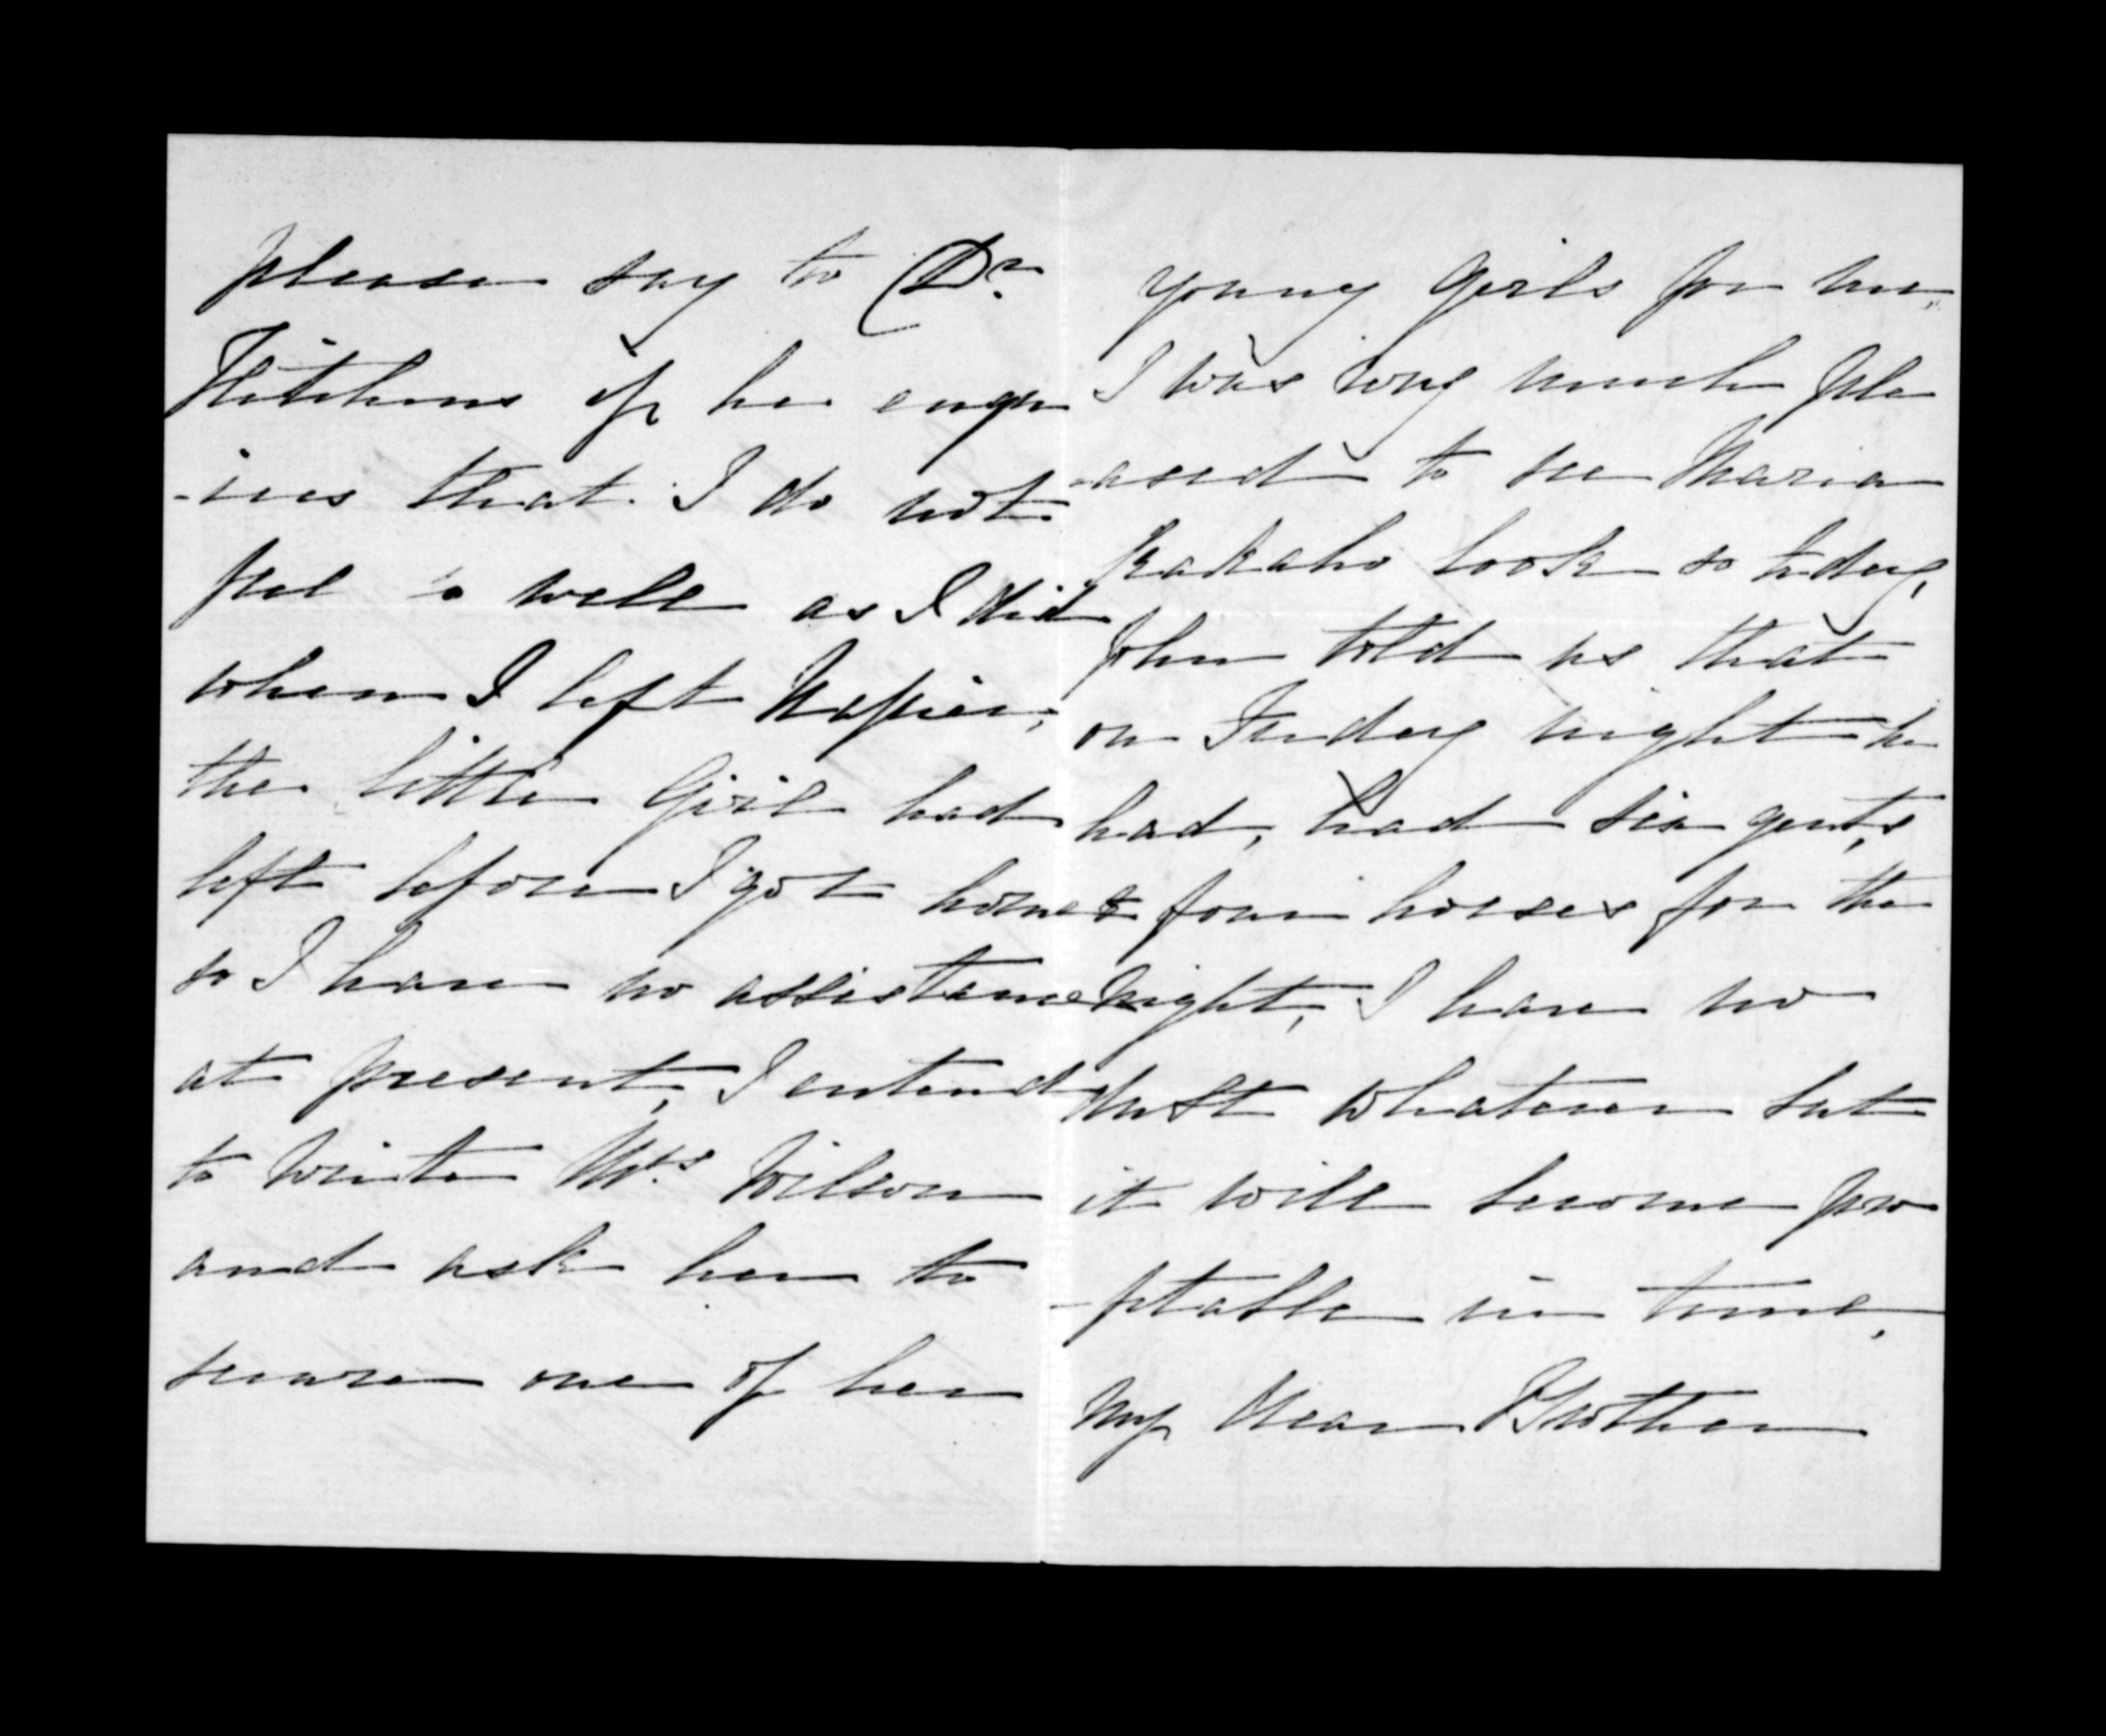 please say to Dr.
Hitchens if he enqu
-ires that I do not
feel so well as I did
when I left Napier,
the little Girl had
left before I got home
so I have no assistance
at present, I entend
to write Mrs Wilson
and ask her to
secure one of her
young Girls for me,
I was very much ple
-ased to see Maria
Kakaho look so tidey,
John told us that
on Friday night he
had, had six gents,
& four horses for the
night, I have no
dubt whatever but
it will become pro
-fitable in time,
My Dear Brother